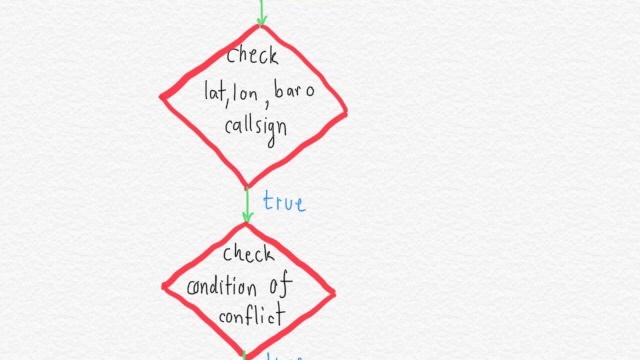 check
lat, lon, baro
callsign
true
check
condition of
conflict
true